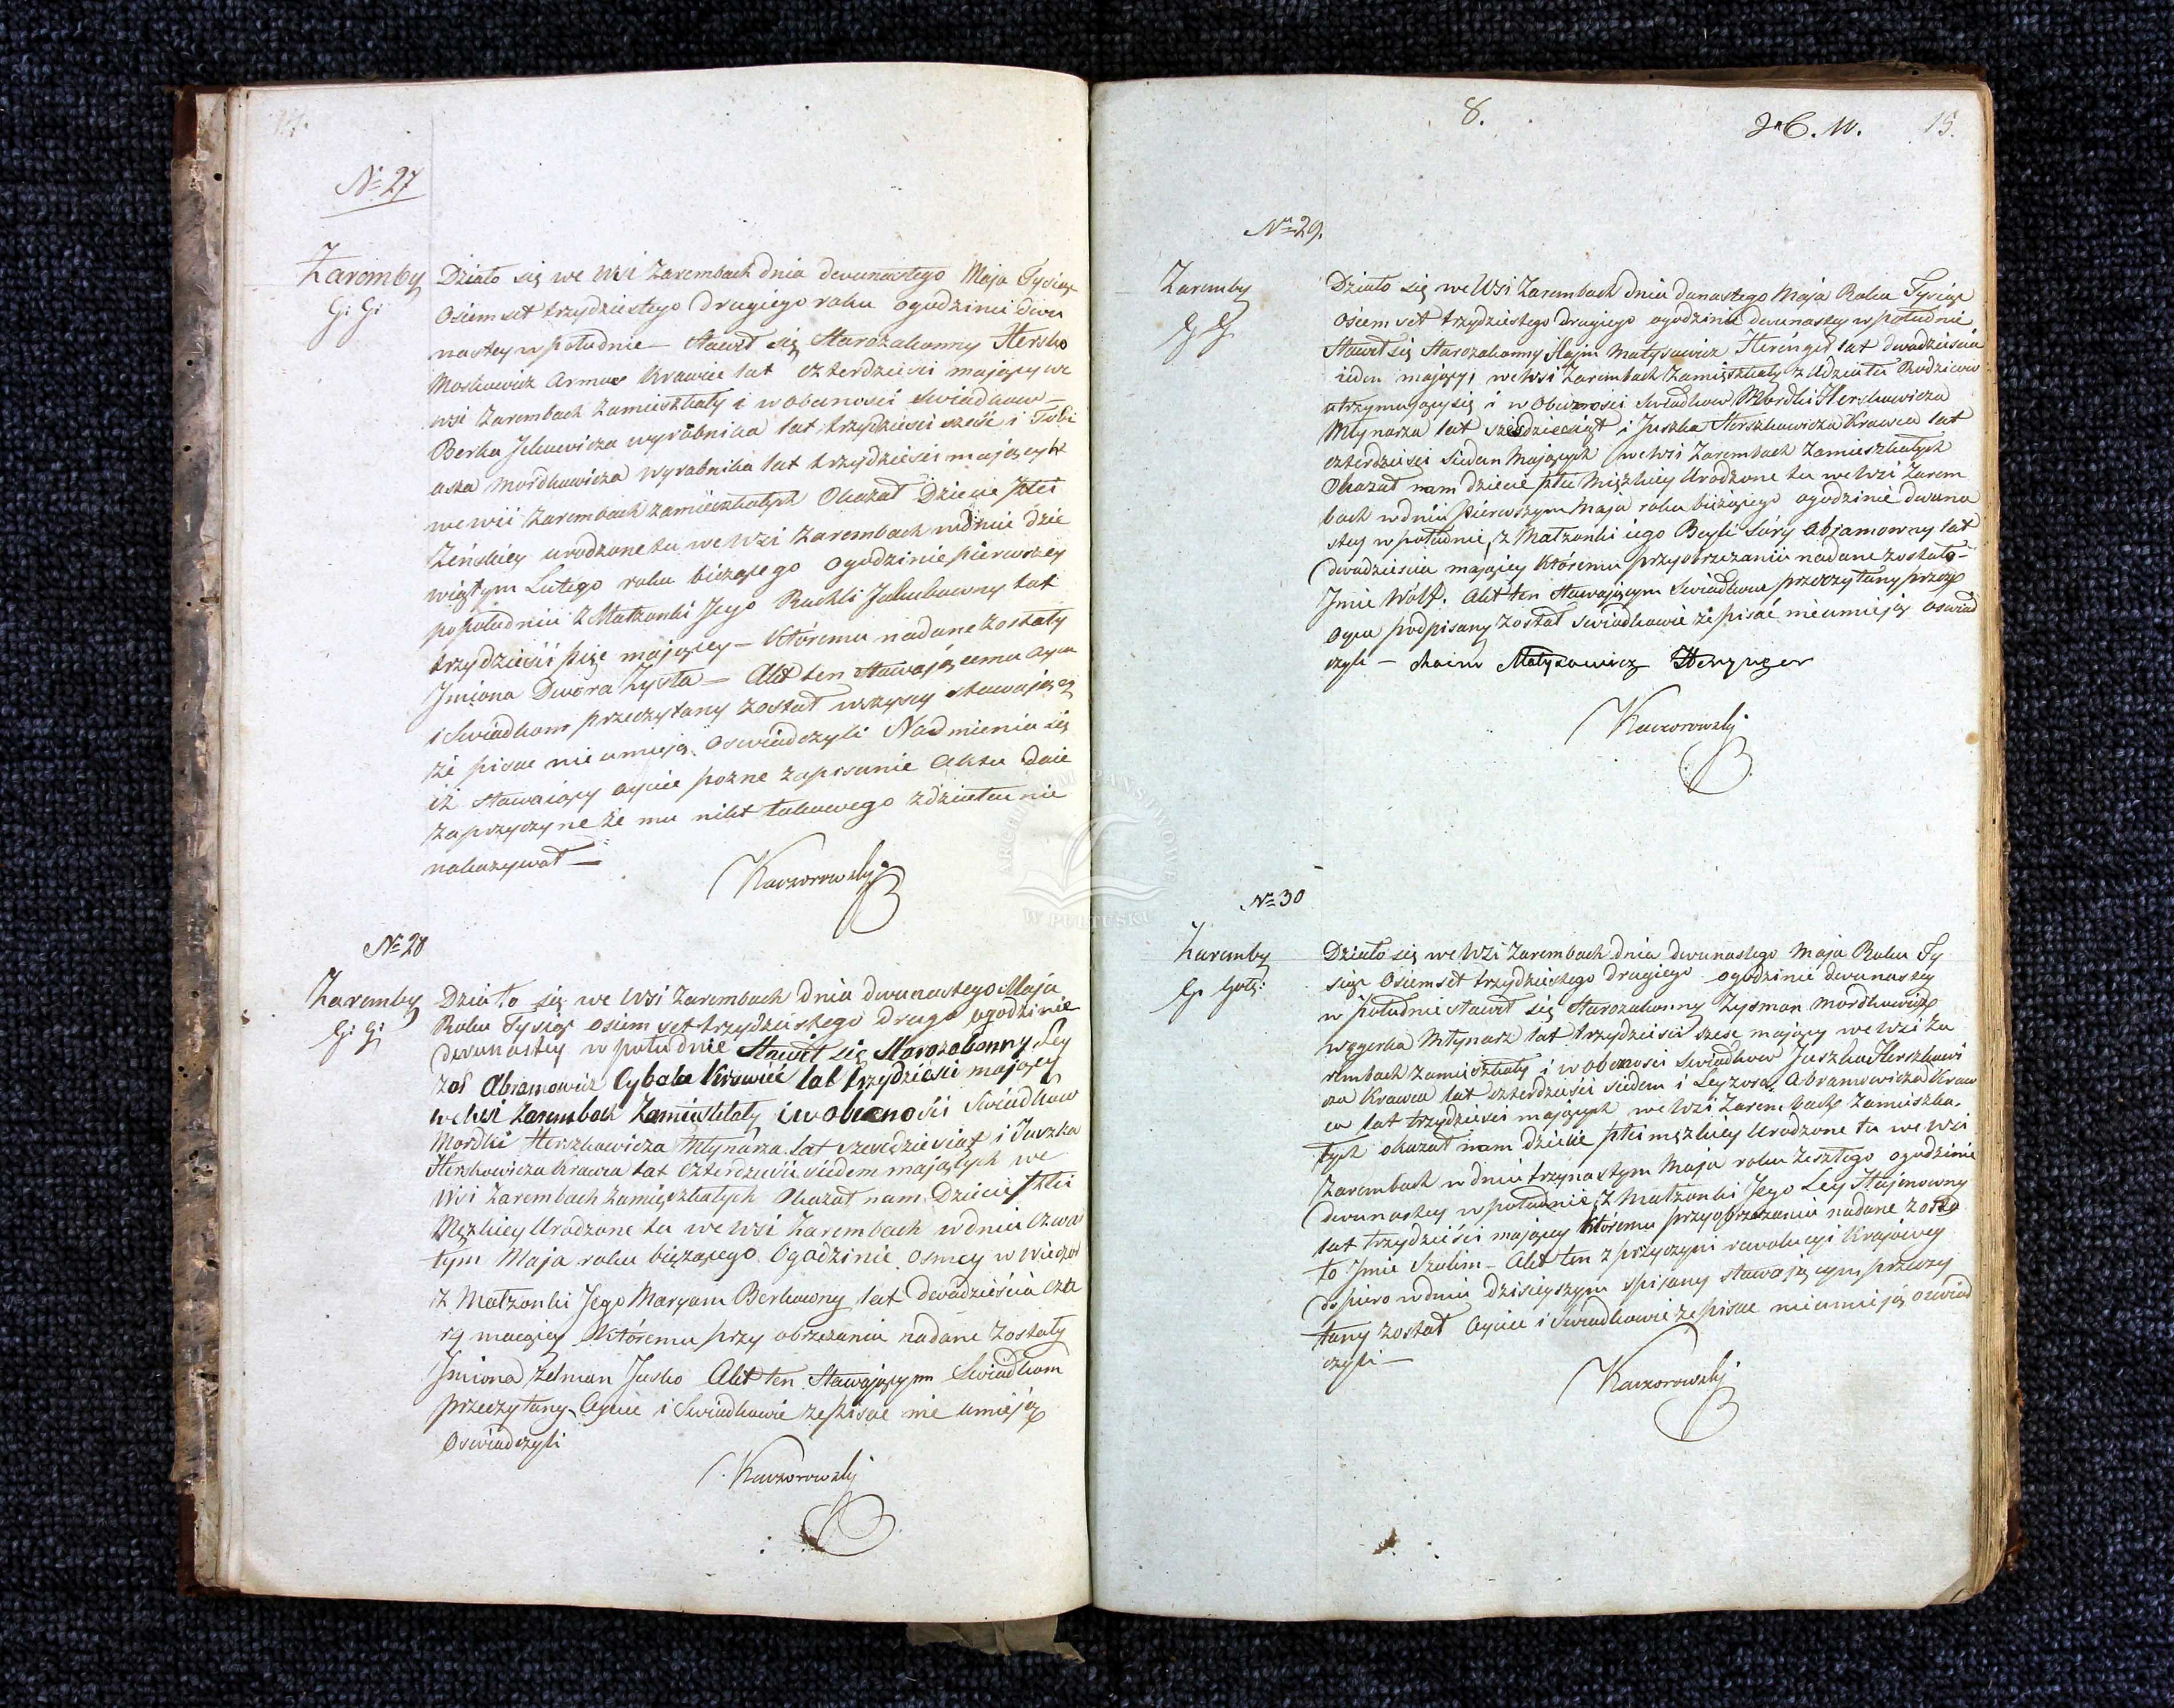 14.
No 27
Zaromby
G: G:
Działo się we Wsi Zarembach dnia dwunastego Maja Tysiąc
Osiemset trzydziestego drugiego roku ogodzinie dwu
nastey w południe — Stawił się Starozakonny Hersko
Moskowicz Krawiec lat czterdzieści maiący we
wsi Zarembach zamieszkały i w obecności Swiadkow —
Berka Jckowicza wyrobnika lat trzydzieści sześć i Tobi
aska Mordkowicza wyrobnika lat trzydzieści mających
we wsi Zarembach zamieszkałych Okazał Dziecie płci
Zeńskiey urodzone tu we Wsi Zarembach w dniu dzie
wiątym Lutego roku bieżącego Ogodzinie pierwszey
po południu z Małżonki Jego Ruchli Jakubowny lat
trzydzieści pięc maiącey — Któremu nadane zostały
Jmiona Dwora Zysla — Akt ten stawaiącemu oycu
i Swiadkom przeczytany został wszyscy stawaiący
że pisac nie umieją Oswiadczyli Nadmienia się
iż stawaiący oyciec pozne zapisanie Aktu daie
za przyczyne że mu nikt takowego zdziałac nie
nakazywał —
Kaczorowski
No 28
Zaromby
G: G:
Działo się we Wsi Zarembach dnia dwunastego Maja
Roku Tysiąc osiem set trzydziestego drugo ogodzinie
dwunastey w południe Stawił się Starozakonny Ley
zor Abramowicz Cybula Krawiec lat trzydzieści mający
we Wsi Zarembach Zamieszkały i w obecności Swiadkow
Mordki Herszkowicza Młynarza lat szescdziesiąt i Juszka
Herszkowicza Krawca lat czterdzieści siedem mających we
Wsi Zarembach Zamięszkałych Okazał nam Dziecie płci
Męzkiey Urodzone tu we Wsi Zarembach w dniu czwar
tym Maja roku bieżącego Ogodzinie osmey w wieczor
z Małzonki Jego Maryam Berkowny lat dwadzieścia czte
ry maiącey Któremu przy obrzezaniu nadane zostały
Jmiona Zelman Jusko Akt ten Stawającym Swiadkom
przeczytany Oyciec i Swiadkowie że pisac nie umieją
Oswiadczyli
Kaczorowski
8.
15.
No 29.
Zaremby
G G
Działo się we Wsi Zarembach dnia dunastego Maja Roku Tysiąc
Osiem set trzydziestego drugiego ogodzinie dwunastey w południe
Stawił się Starozakonny Hajm Matysowicz Heringer lat dwadzieścia
ieden mający, we Wsi Zarembach Zamięszkały z Udziału Rodziców
utrzymujący się i w Obecnosci Swiadkow Mordki Herszkowicza
Młynarza lat szesdziesiąt i Juszka Herszkowicza Krawca lat
czterdzieści siedem Mających we Wsi Zarembach Zamieszkałych
Okazał nam dziecie płci Męzkiey Urodzone tu we Wsi Zarem
bach w dniu pierwszym Maja roku bieżącego ogodzinie dwuna
stey w południe, z Małżonki iego Beyli Sury Abramowny lat
dwadzieścia mającey Któremu przy obrzezaniu nadane zostało —
Jmie Wolf. Akt ten Stawającym Swiadkom przeczytany przez
oyca podpisany został swiadkowie że pisać nieumieją oswiad
czyli — Chaim Matysowicz Herynger
Kaczorowski
No 30
Zaremby
G Gołę:
Działo się we Wsi Zarembach dnia dwunastego Maja Roku Ty
siąc Osiemset trzydziestego drugiego ogodzinie dwunastey
w południe stawił się Starozakonny Zysman Mordkowicz
Węgerka Młynarz lat trzydzieści szesc mający we Wsi Za
rembach zamieszkały i w obecnosci Swiadkow Juszka Herszkowi
cza Krawca lat czterdzieści siedem i Leyzora Abramowicza Kraw
ca lat trzydzieści mających we Wsi Zarembach Zamieszka-
łych okazał nam dziecie płci męzkiey Urodzone tu we wsi
Zarembach w dniu trzynastym Maja roku Zeszłego ogodzinie
dwunastey w południe, z Małżonki Jego Ley Hajmowny
lat trzydzieści mającey Któremu przy obrzezaniu nadane zosta
ło Jmie Szulim — Akt ten z przyczyni rewolucyi Krajowey
dopiero w dniu dzisieyszym spisany stawającym przeczy
tany został Oyciec i Swiadkowie że pisac nieumieją oswiad
czyli —
Kaczorowski
ARCHIWUM PAŃSTWOWE
W PUŁTUSKU